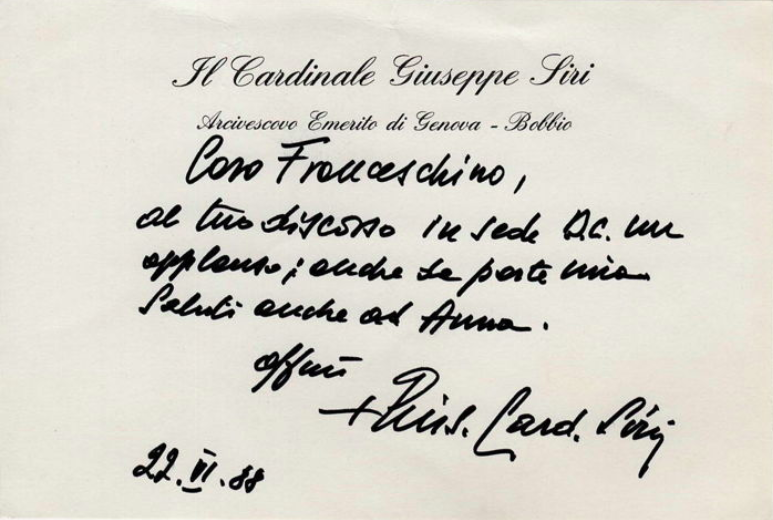 Il Cardinale Giuseppe Siri
Arcivescovo Emerito di Genova - Bobbio
Caro Franceschino,
al tuo discorso in sede D.C. un
applauso; anche da parte mia
Saluti anche ad Anna.
aff.mi
+ Gius. Card. Siri
22.VI.88